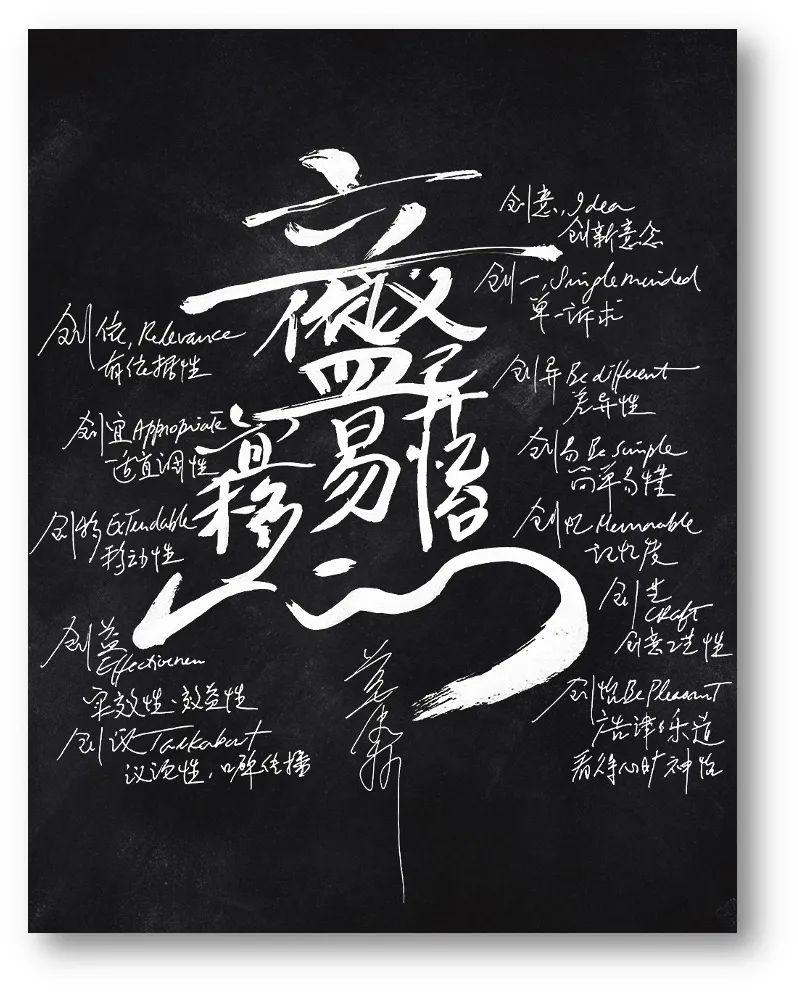 创意, Idea
创新意念
创一, Single minded
单一诉求
创异 Be different
差异性
创易 Be Simple
简单易懂
创忆 Memorable
记忆度
创艺
Craft
创意工艺性
创怡 Be Pleasant
广告津津乐道
看得心旷神怡
创依, Relevance
有依据性
创宜 Appropriate
适宜调性
创移 Extendable
移动性
创益
Effectiveness
实效性·效益性
创议 Talkabout
议论性, 口碑传播